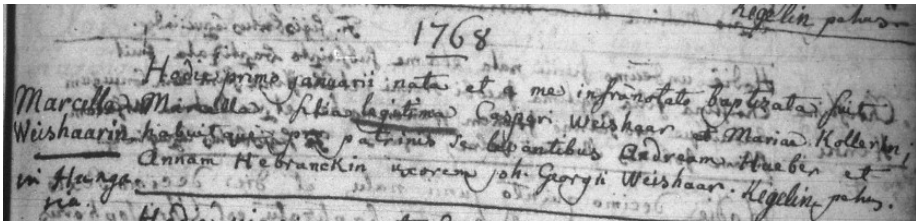 Regelin pahus
1768
Hodie primo januarii nata et a me infranotato baptizata fuit
Marcella Marcella filia legitima Caspari Weishaar et Mariae Kollerin
Weishaarin habuitque pro patrinis se levantibus Andream Hueber et
Annam Hebranckin uxorem Joh. Georgii Weishaar. Regelin pahus.
in Hunga
ria.